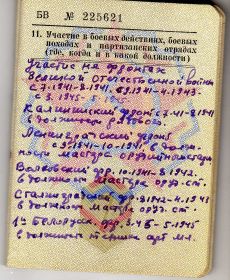 БВ № 225621
11. Участие в боевых действиях, боевых
походах и партизанских отрядах
(где, когда и в какой должности)
Участие на фронтах
Великой Отечественной войны
с 7.1941-8.1941, 1941-4.1943.
с 3.1945-5.1945
Калининский фронт с 7.41-8.41
в должности
Ленинградский фронт
с 9.1941-10.1941, в долж-
ности мастера
Волховский фр. 10.1941-8.1942.
в должности мастера оруж. ст.
Сталинградский фр. 1942-4.1943
в должности мастера оруж. ст.
1й Белорус. фр. 3.45-5.1945
в должности техника арт